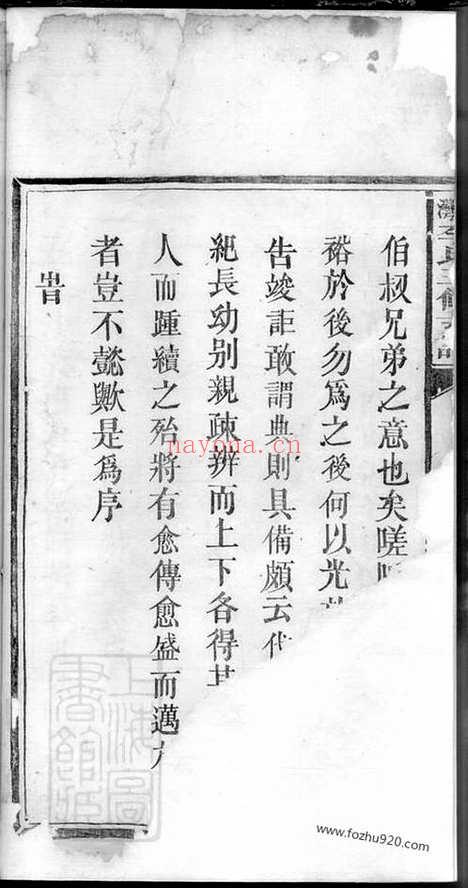 李氏三修支譜
伯叔兄弟之意也矣嗟
裕於後勿爲之後何以光
告竣詎敢謂典則具備頗云
紀長幼別親疎辨而上下各得
人而踵續之殆將有愈傳愈盛而邁
者豈不懿歟是爲序
旹
nayona.cn
上海圖書館藏
www.fozhu920.com